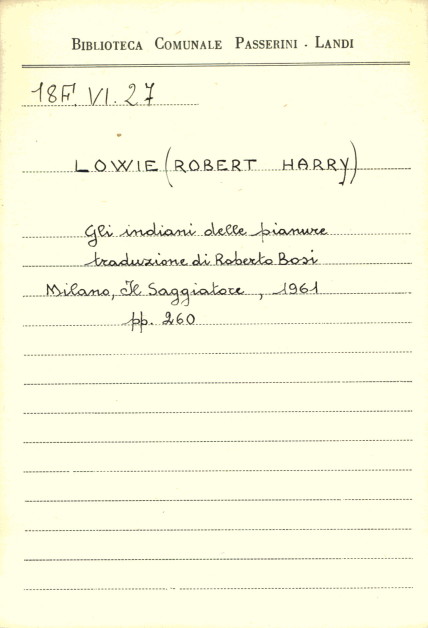 BIBLIOTECA COMUNALE PASSERINI - LANDI
18F. VI. 27
LOWIE (ROBERT HARRY)
Gli indiani delle pianure
traduzione di Roberto Bosi
Milano, Il Saggiatore, 1961
pp. 260